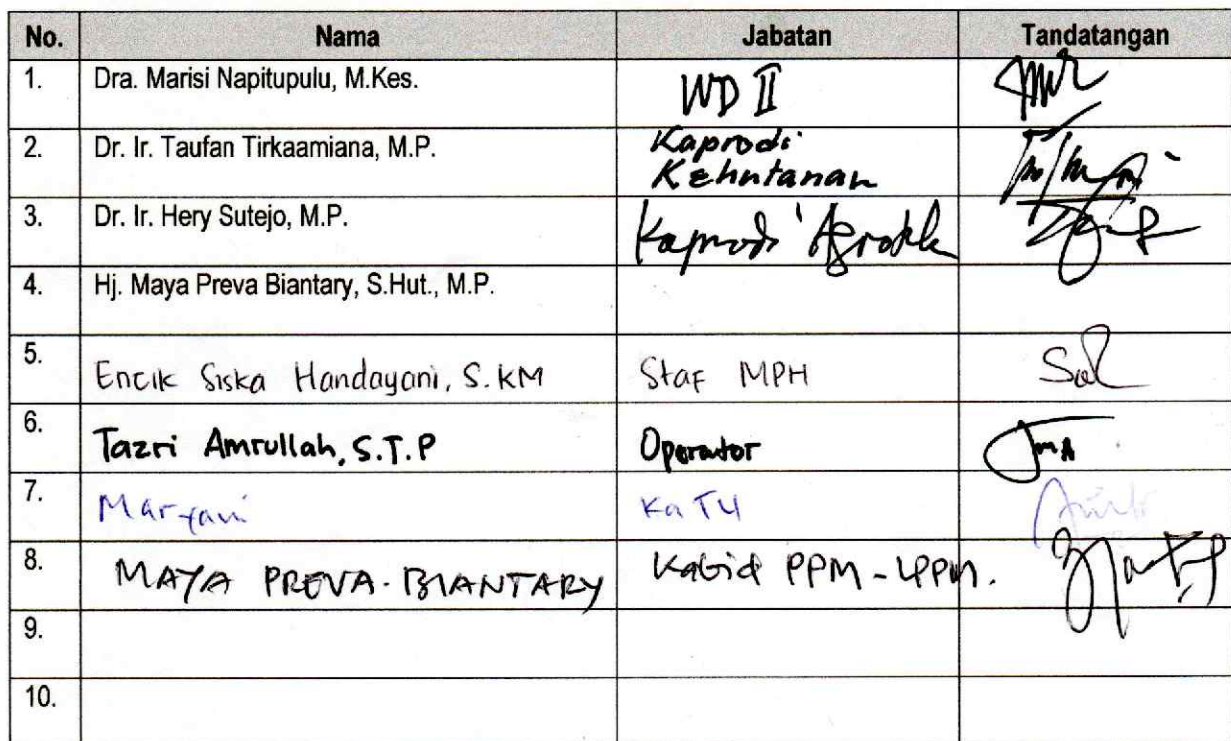 No. Nama Jabatan Tandatangan
1. Dra. Marisi Napitupulu, M.Kes. WD II
2. Dr. Ir. Taufan Tirkaamiana, M.P. Kaprodi
Kehutanan
3. Dr. Ir. Hery Sutejo, M.P. Kaprodi
4. Hj. Maya Preva Biantary, S.Hut., M.P.
5. Encik Siska Handayani, S.KM Staf MPH
6. Tazri Amrullah, S.T.P Operator
7. Maryani Ka TU
8. MAYA PREVA BIANTARY Kabid PPM - LPPM.
9.
10.